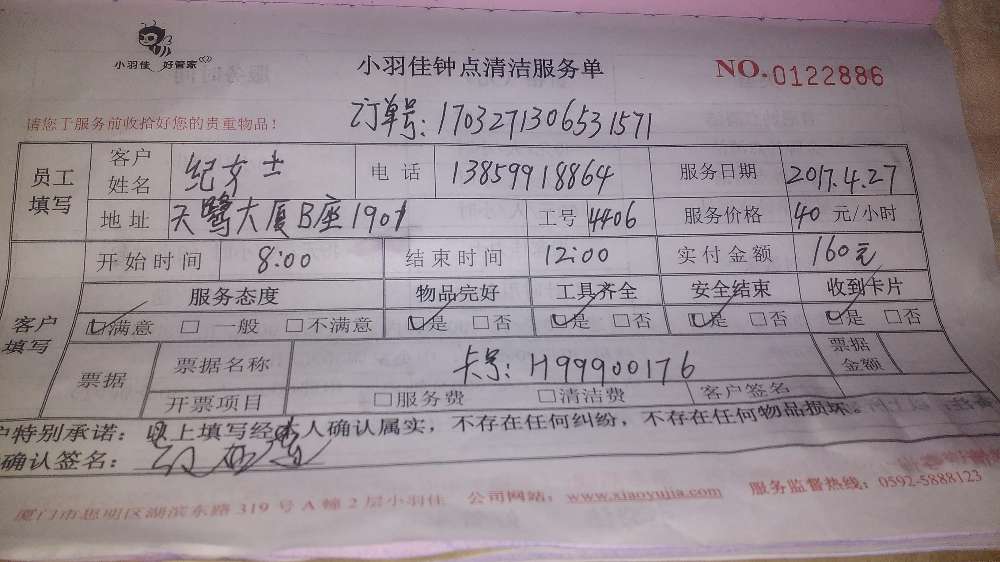 小羽佳 好管家
小羽佳钟点清洁服务单
NO.0122886
请您于服务前收拾好您的贵重物品！
订单号：1703271306531571
员工填写 客户姓名 纪女士 电话 13859918864 服务日期 2017.4.27
地址 天鹭大厦B座1901 工号 4406 服务价格 40 元/小时
客户填写 开始时间 8:00 结束时间 12:00 实付金额 160元
服务态度 物品完好 工具齐全 安全结束 收到卡片
☑满意 □一般 □不满意 ☑是 □否 ☑是 □否 ☑是 □否 ☑是 □否
票据 票据名称 卡号：H99900176 票据金额
开票项目 □服务费 □清洁费 客户签名
户特别承诺：以上填写经本人确认属实，不存在任何纠纷，不存在任何物品损坏。
确认签名：
厦门市思明区湖滨东路 319 号 A 幢 2 层小羽佳 公司网站：www.xiaoyujia.com 服务监督热线：0592-5888123